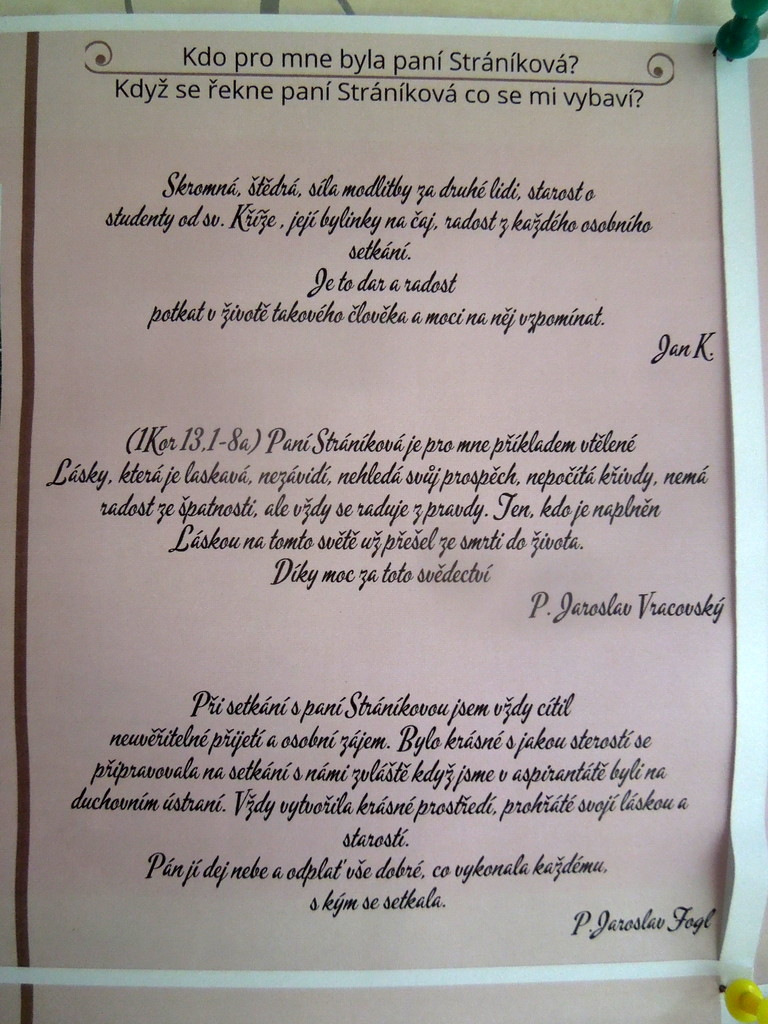 Kdo pro mne byla paní Stráníková?
Když se řekne paní Stráníková co se mi vybaví?
Skromná, štědrá, síla modlitby za druhé lidi, starost o
studenty od sv. Kříže , její bylinky na čaj, radost z každého osobního
setkání.
Je to dar a radost
potkat v životě takového člověka a moci na něj vzpomínat.
Jan K.
(1Kor 13,1-8a) Paní Stráníková je pro mne příkladem vtělené
Lásky, která je laskavá, nezávidí, nehledá svůj prospěch, nepočítá křivdy, nemá
radost ze špatnosti, ale vždy se raduje z pravdy. Ten, kdo je naplněn
Láskou na tomto světě už přešel ze smrti do života.
Díky moc za toto svědectví
P. Jaroslav Vracovský
Při setkání s paní Stráníkovou jsem vždy cítil
neuvěřitelné přijetí a osobní zájem. Bylo krásné s jakou sterostí se
připravovala na setkání s námi zvláště když jsme v aspirantátě byli na
duchovním ústraní. Vždy vytvořila krásné prostředí, prohřáté svojí láskou a
starostí.
Pán jí dej nebe a odplať vše dobré, co vykonala každému,
s kým se setkala.
P. Jaroslav Fogl